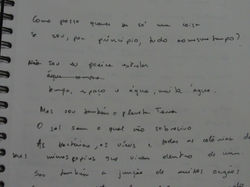 Como posso querer ser só uma coisa
Se sou, por princípio, tudo ao mesmo tempo?
Não sou eu poeira estelar
tempo, espaço e água, muita água.
Mas sou também o planeta Terra
O sol sem o qual não sobrevivo
As bactérias, os vírus e todas as colônias de
seus minuciosos que vivem dentro de mim
Sou também a junção de muitos órgãos,